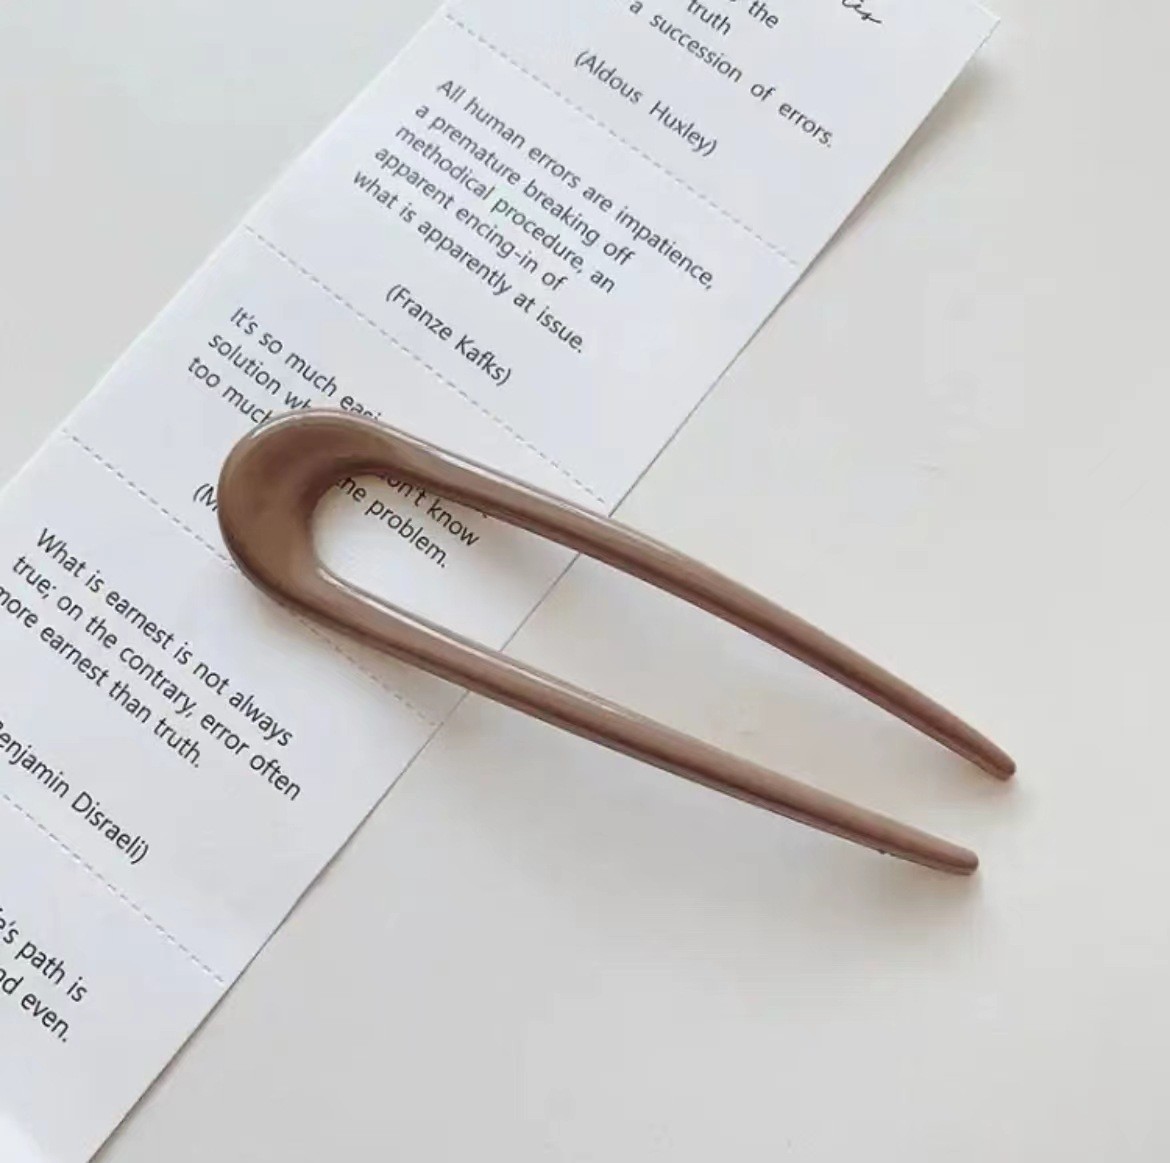 the
truth
a succession of errors.
(Aldous Huxley)
All human errors are impatience,
a premature breaking off
methodical procedure, an
apparent encing-in of
what is apparently at issue.
(Franze Kafks)
It's so much
solution
too much
don't know
the problem.
What is earnest is not always
true; on the contrary, error often
more earnest than truth.
Benjamin Disraeli)
path is
even.